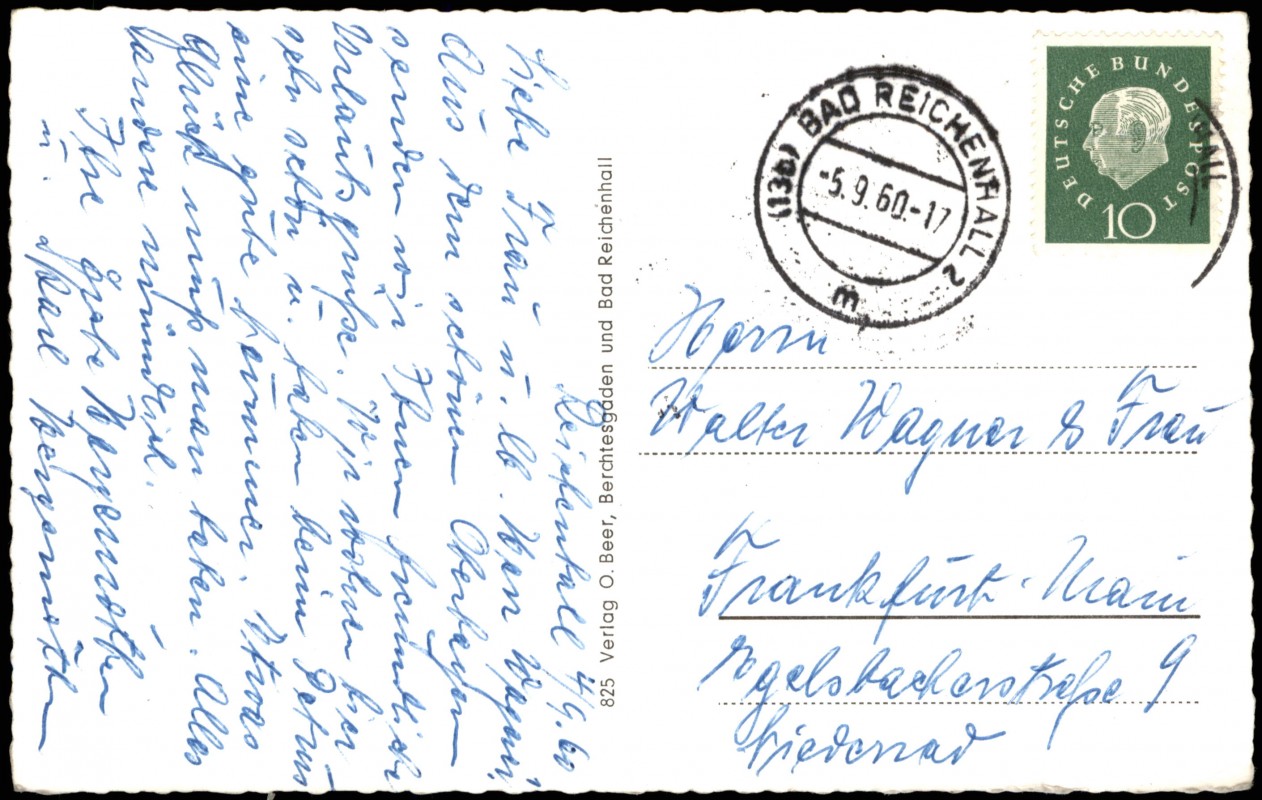 Reichenhall 4/9.60
Liebe Frau u. lb. Herr Wagner
Aus dem schönen Oberbayern
senden wir Ihnen freundliche
Urlaubsgrüße. Wir wohnen hier
sehr schön u. haben beim
eine gute Kammer. Etwas
Glück muß man haben. Alles
andere mündlich.
Ihre Grete
u. Karl
825 Verlag O. Beer, Berchtesgaden und Bad Reichenhall
(13b) BAD REICHENHALL 2
-5.9.60.-17
m
DEUTSCHE BUNDESPOST
10
ALL
Herrn
Walter Wagner & Frau
Frankfurt-Main
Egelsbacherstraße 9
Niederrad